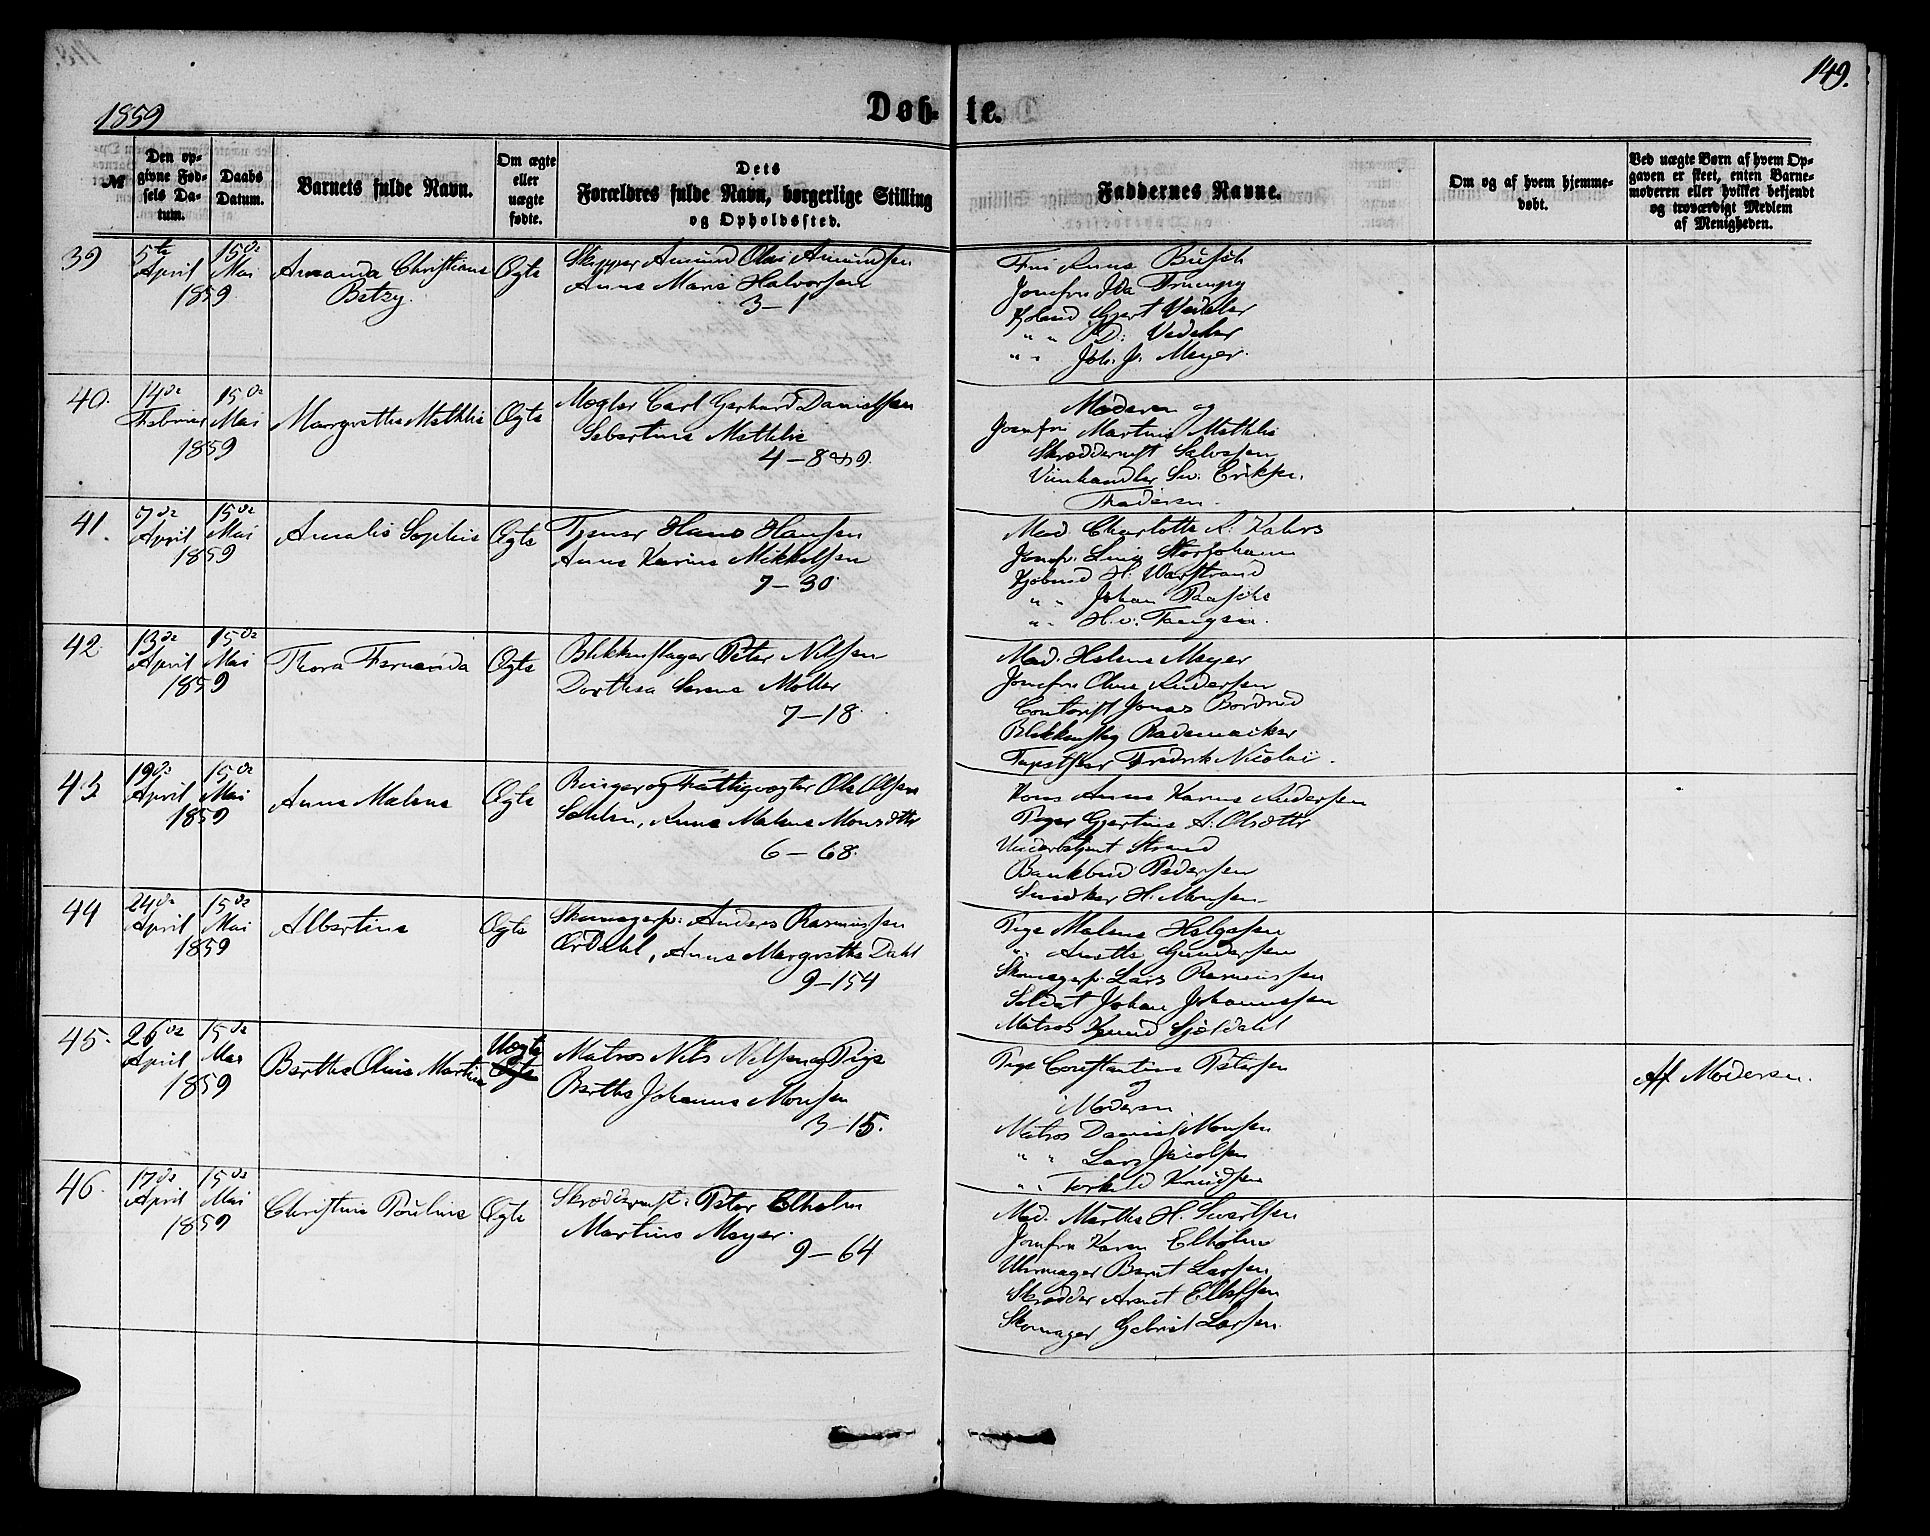 149.
1859
Døb- te.
№
Den op-
givne Fød-
sels Da-
tum.
Daabs
Datum.
Barnets fulde Navn.
Om ægte
eller
uægte
fødte.
Dets
Forældres fulde Navn, borgerlige Stilling
og Opholdssted.
Faddernes Navne.
Om og af hvem hjemme-
døbt.
Ved uægte Børn af hvem Op-
gaven er skeet, enten Barne-
moderen eller hvilket bekjendt
og troværdigt Medlem
af Menigheden.
39
5te
April
15de
Mai
1859
Amanda Christiane
Betzy.
Ægte
Skipper Amund Olai Amundsen
Anne Marie Halvorsen
3-1
Jomfru Ida Trumpy
Gjert Vedeler
" " D: Vedeler
" " Joh. J. Meyer.
40.
14de
Februar
15de
Mai
1859
Margrethe Methlie
Ægte
Mægler Carl Gerhard Danielsen
Sebertine Methlie
4-8 & 9.
Moderen og
Jomfru Martine Methlie
Skræddermst Salvesen
Viinhandler Sv. Eriksen.
Faderen.
41.
7de
April
15de
Mai
1859
Amalie Sophie
Ægte
Tjener Hans Hansen
Anne Karine Mikkelsen
7-30
Mad Charlotte A. Kahrs
Jomfr. Storjohann
H. Warstrand
" " Johan Paasche
" "
42.
13de
April
15de
Mai
1859
Thora Fernanda
Ægte
Blikkenslager Peter Nilsen
Dorthea Serene Moller
7-18.
Mad. Helene Meyer
Jomfru Oline Andersen
Contorist Jonas Bordvid
Blikkenslg Rademacker
Fredrik Nicolai.
43
19de
April
15de
Mai
1859
Anne Malene
Ægte
Ringer og Fattigvogter Ole Olsen
Sæhlen, Anne Malene Monsdtter
6-68.
Kone Anne Karine Andersen
Pige Gjertine A. Olsdttr
Strand
Bankbud Pedersen
Snedker H. Monsen
44
24de
April
15de
Mai
1859
Albertine
Ægte
Skomagersv: Anders Rasmussen
Ørdahl, Anne Margrethe Dahl
9-154
Pige Malene Helgesen
" Anette Gundersen
Skomagersv. Lars Rasmussen
Soldat Johan Johannessen
Matros Knud Sjoldahl
45.
26de
April
15de
Mai
1859
Berthe Oline Martine
Uægte
Ægte
Matros Nils Nilsen og Pige
Berthe Johanne Monsen
3-15.
Pige Constantine Petersen
og
Moderen
Matros Daniel Monsen
" " Lars Jacobsen
" " Torkild Knudsen
Af Moderen.
46.
17de
April
15de
Mai
1859
Christine Pouline
Ægte
Skræddermst: Peter Elholm
Martine Meyer.
9-64
Mad. Marthe H. Sivertsen
Jomfru Karen Elholm
Uhrmager Bernt Larsen
Skrædder Arent Ellefsen
Skomager Gabriel Larsen.